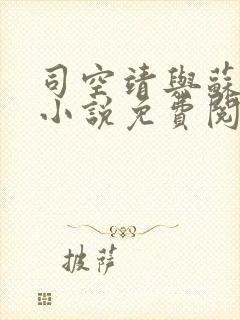 司空靖與蘇
小說免費閱
披薩